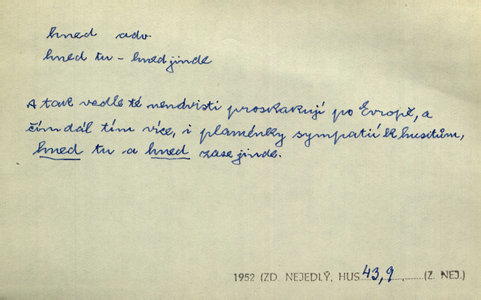 hned adv.
hned tu – hned jinde
A tak vedle té nenávisti proskakují po Evropě, a
čím dál tím více, i plaménky sympatií k husitům,
hned tu a hned zase jinde.
1952 (ZD. NEJEDLÝ, HUS 43,9 (Z. NEJ.)